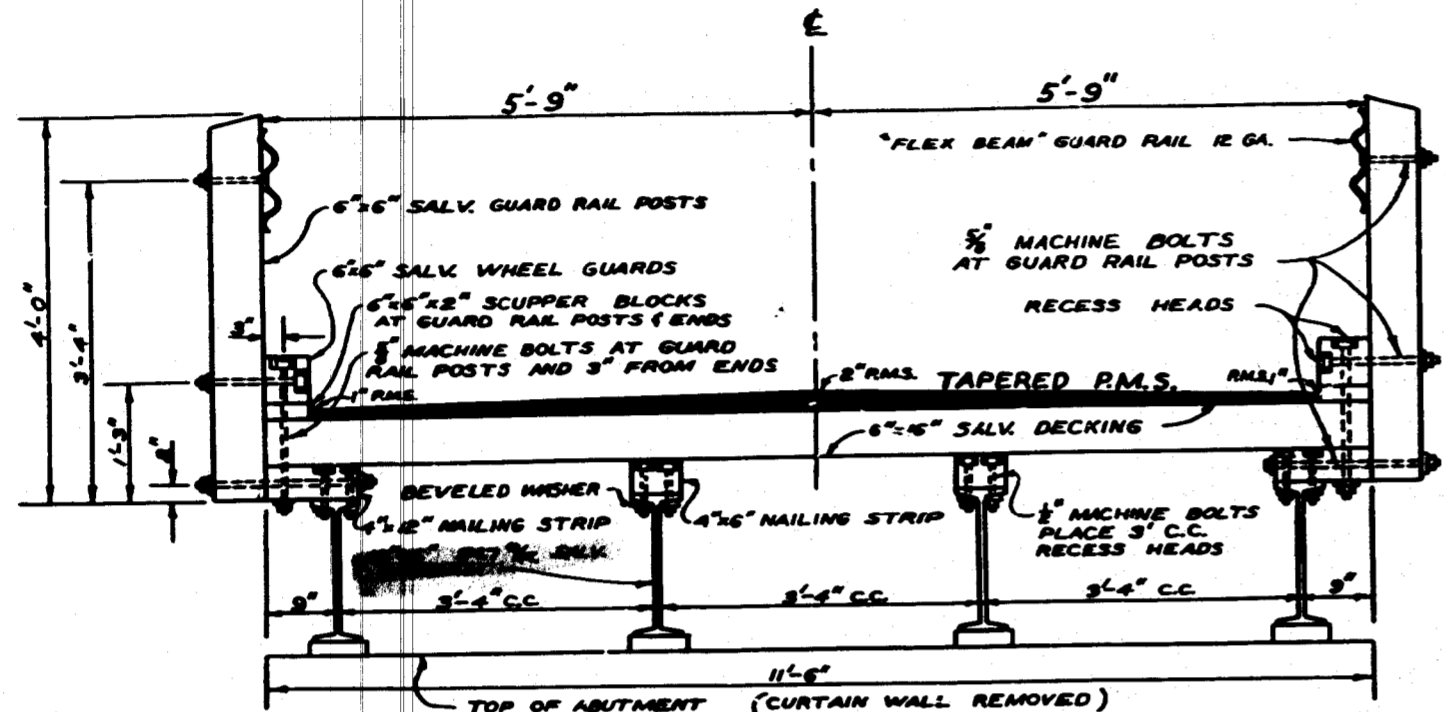 ℄
5'-9"
5'-9"
"FLEX BEAM" GUARD RAIL 12 GA.
6"x6" SALV. GUARD RAIL POSTS
5/8" MACHINE BOLTS
AT GUARD RAIL POSTS
6"x6" SALV. WHEEL GUARDS
RECESS HEADS
6"x6"x2" SCUPPER BLOCKS
AT GUARD RAIL POSTS & ENDS
4'-0"
3'-4"
3"
5/8" MACHINE BOLTS AT GUARD
RAIL POSTS AND 3" FROM ENDS
1" RMS.
2" RMS.
TAPERED P.M.S.
RMS. 1"
1'-3"
2"
6"x16" SALV. DECKING
BEVELED WASHER
4"x12" NAILING STRIP
4"x6" NAILING STRIP
1/2" MACHINE BOLTS
PLACE 3' C.C.
RECESS HEADS
SALV.
9"
3'-4" C.C.
3'-4" C.C.
3'-4" C.C.
9"
11'-6"
TOP OF ABUTMENT (CURTAIN WALL REMOVED)